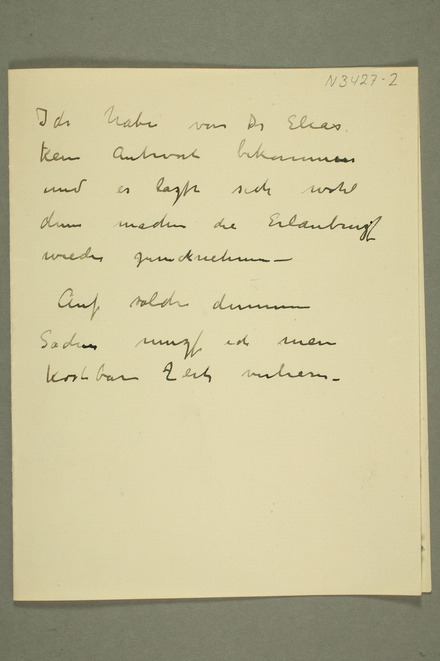 N3427-2
Ich habe von Dr Elias
kein Antwort bekommen
und es laszt sich wohl
dann machen die Erlaubnisz
wieder zurucknehmen —
Auf solche dummen
Sachen musz ich mein
Kostbare Zeit verlieren —